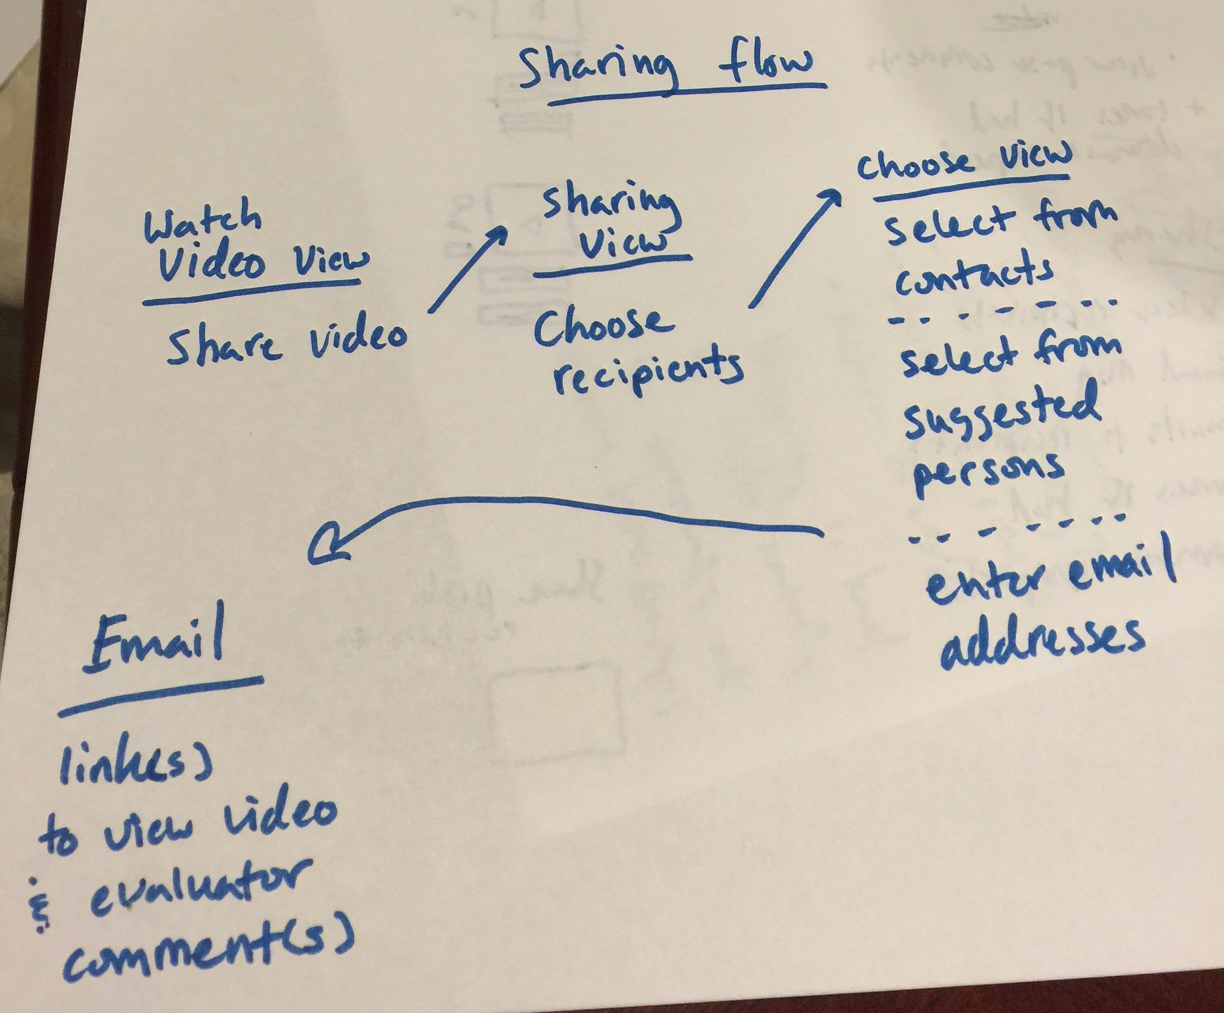 Sharing flow
Watch
Video View
Share video
Sharing
View
Choose
recipients
Choose View
select from
contacts
select from
suggested
persons
enter email
addresses
Email
link(s)
to view video
& evaluator
comment(s)